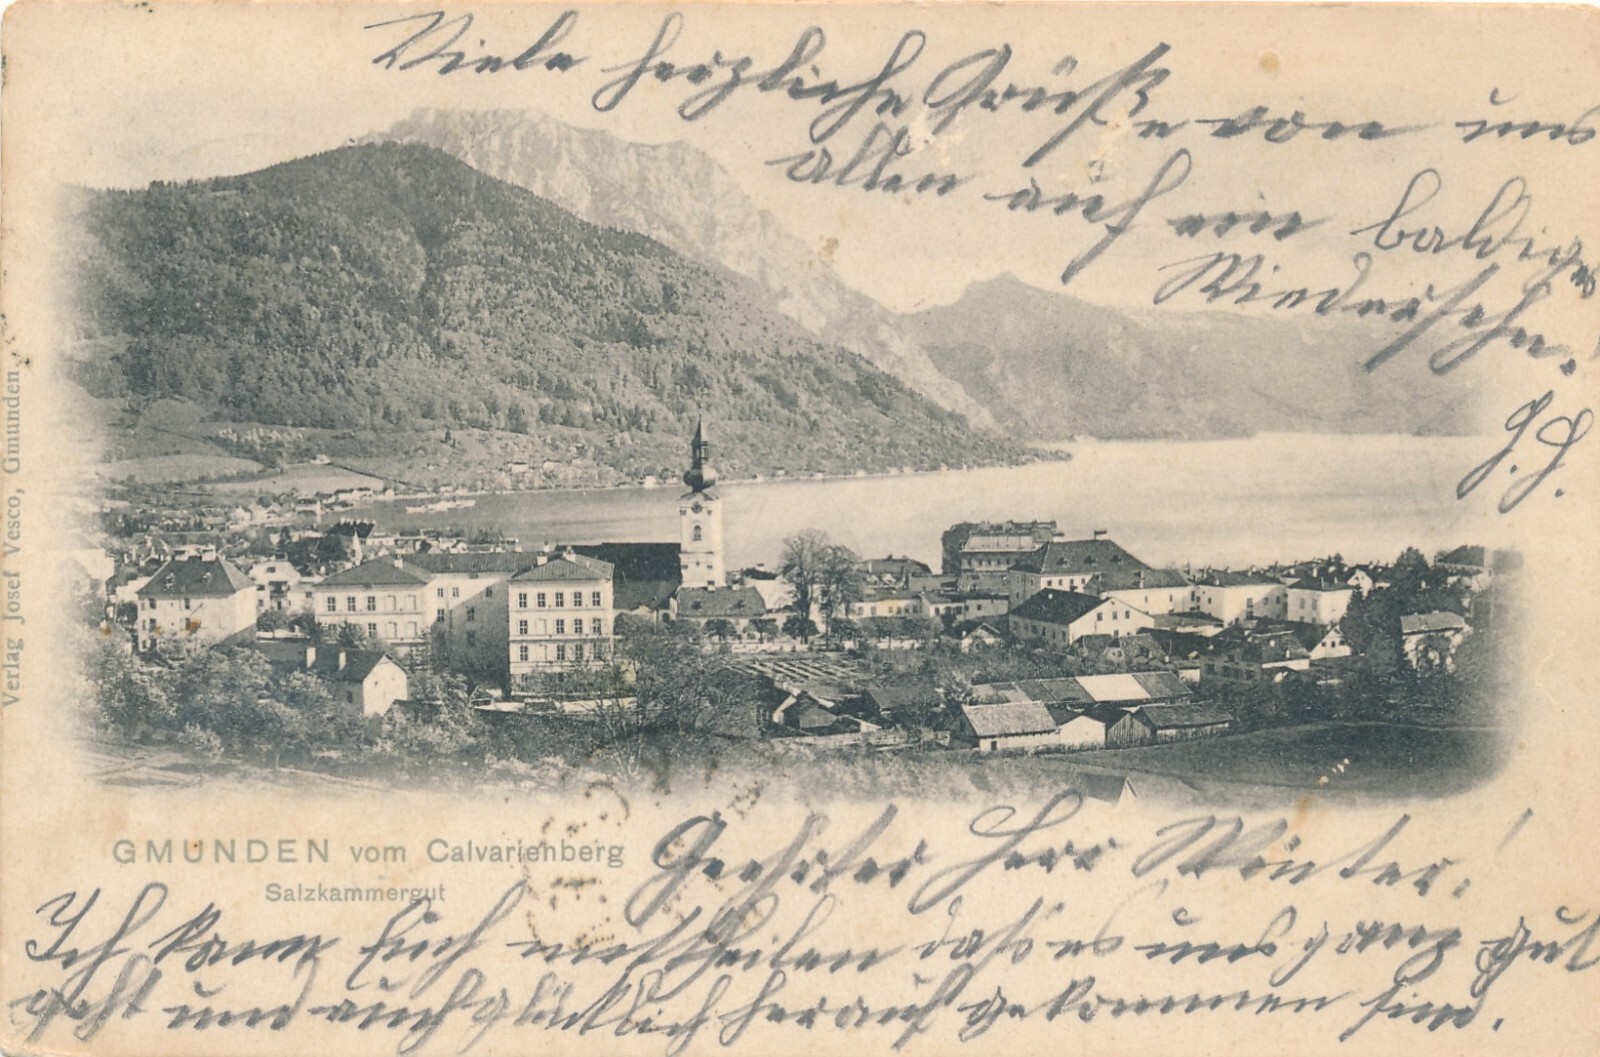 Viele herzliche Grüße von uns
allen auf ein baldiges
Wiedersehn.
Verlag Josef Vesco, Gmunden.
GMUNDEN vom Calvarienberg
Salzkammergut
Geehrter Herr Winter!
Ich kann Euch mittheilen daß es uns ganz gut
geht und auch glücklich herauf gekommen sind.